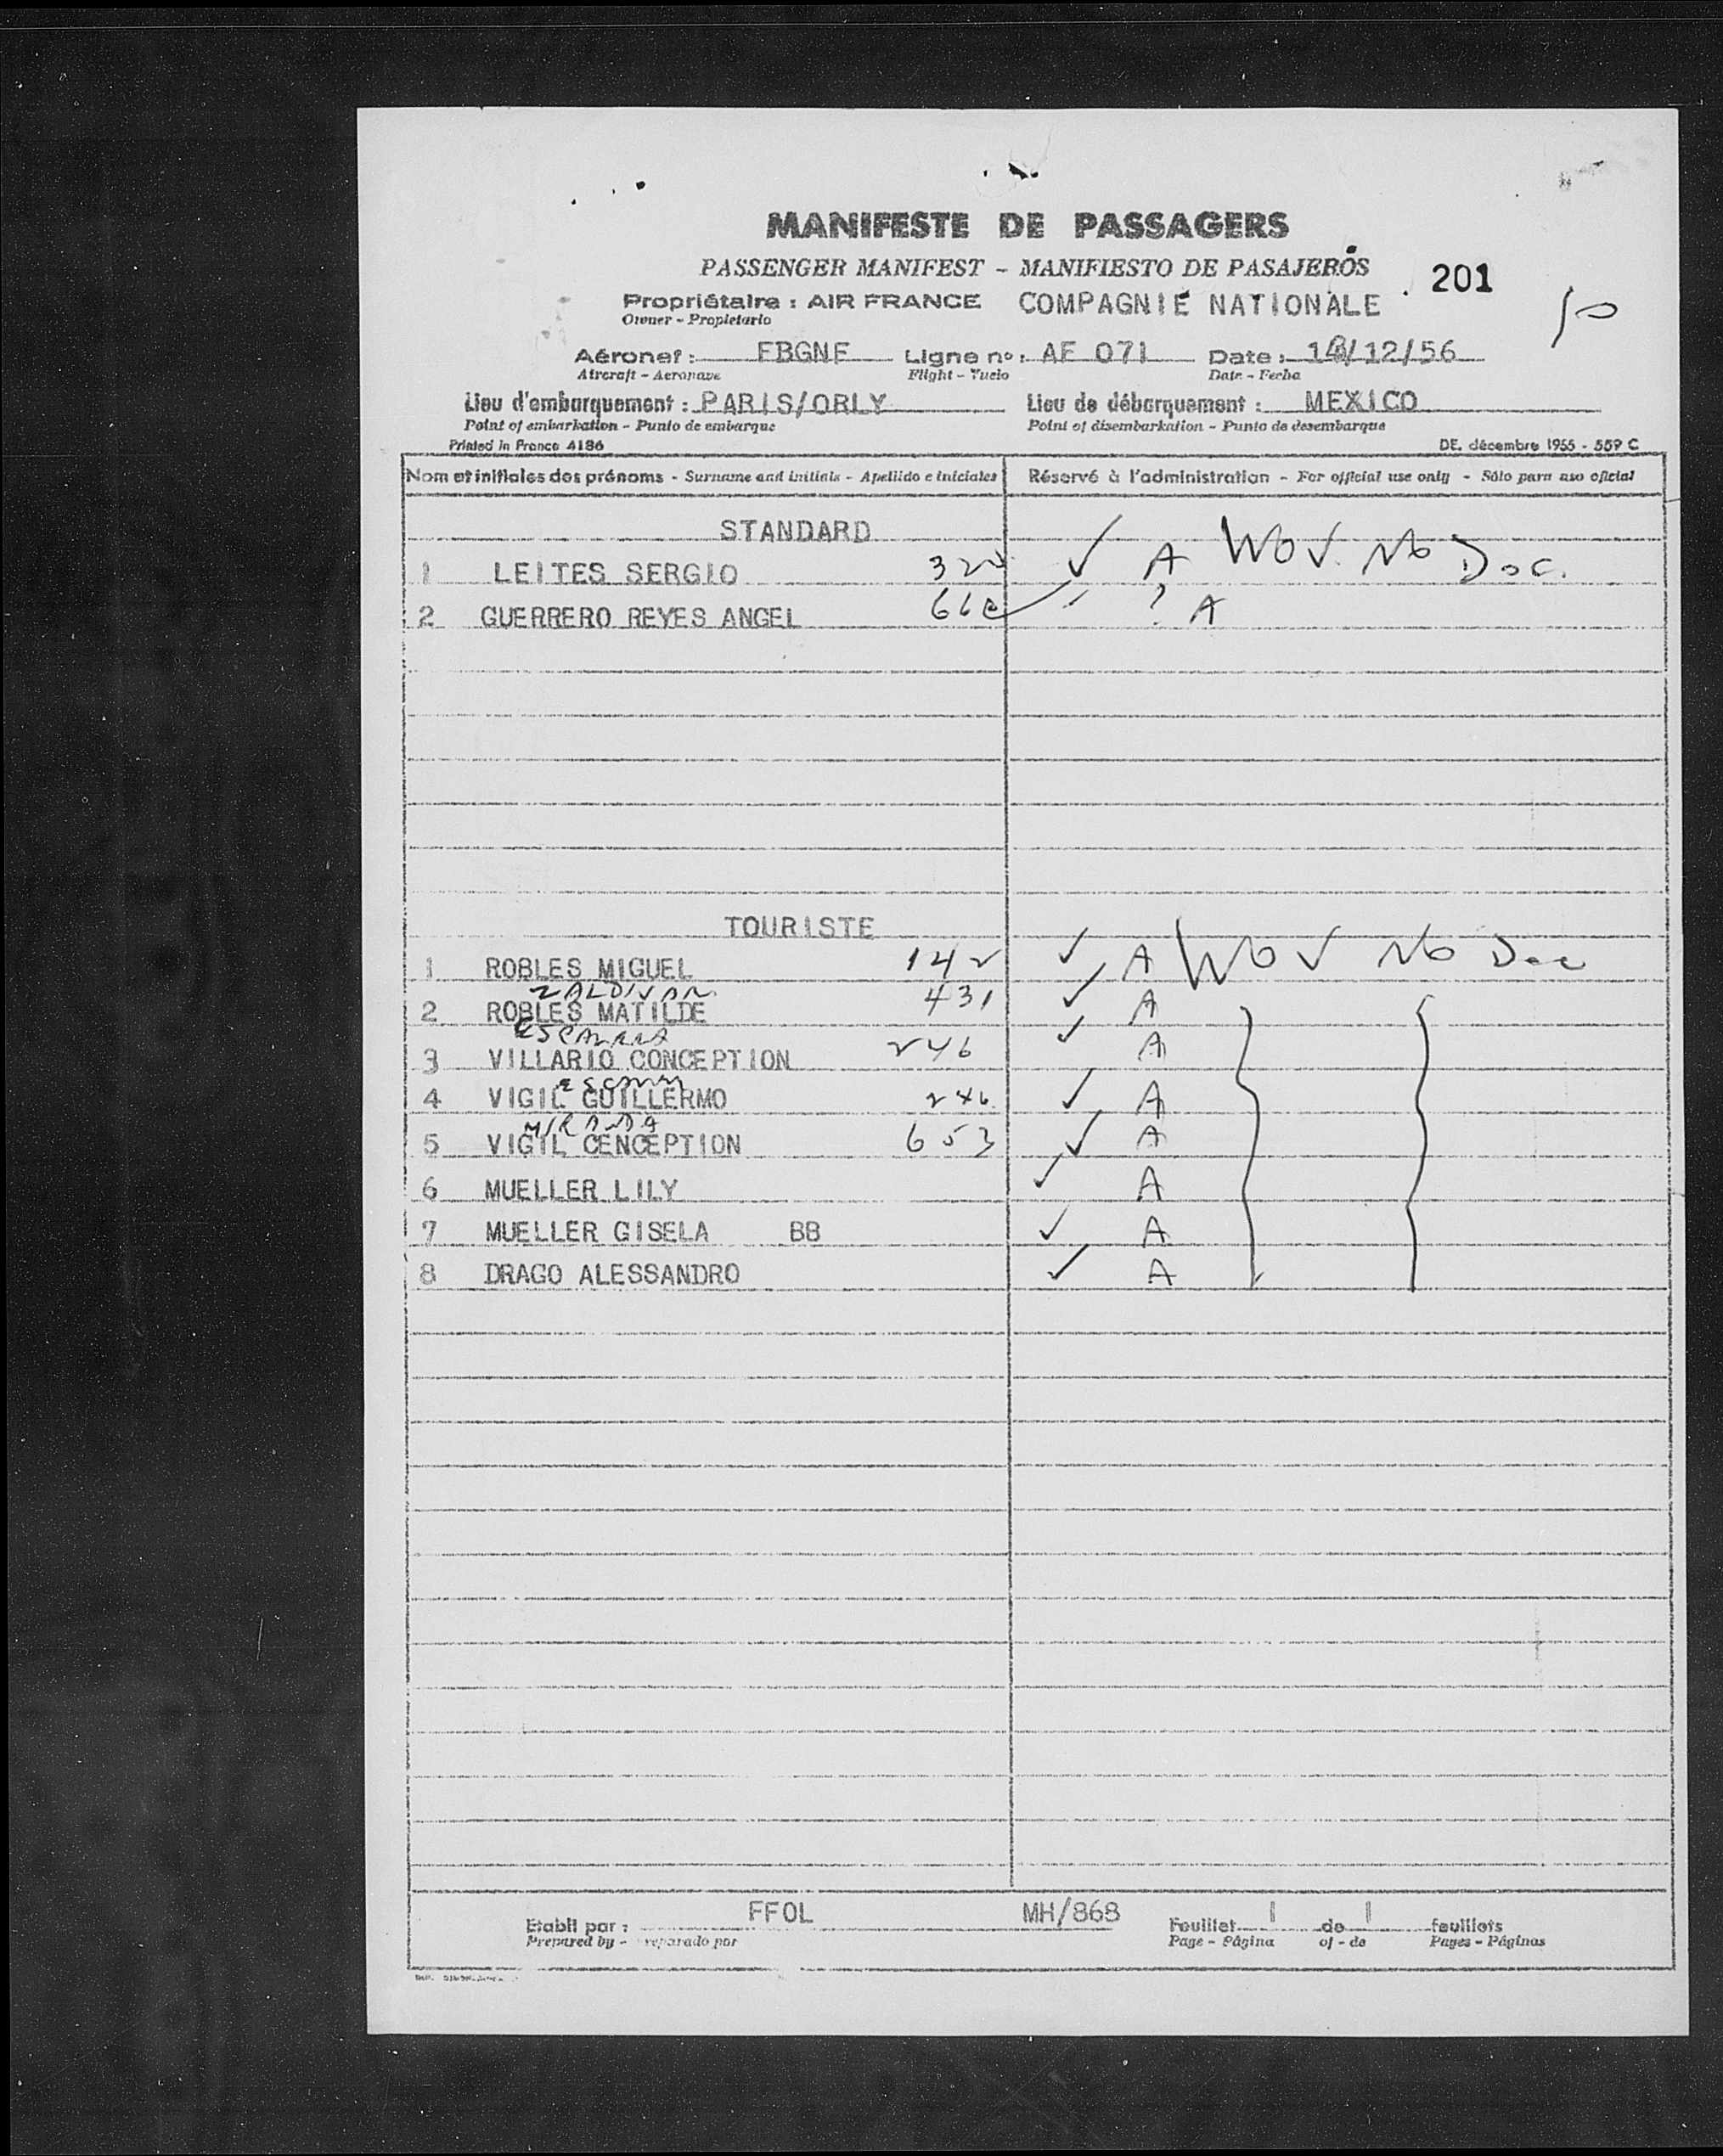 MANIFESTE DE PASSAGERS
PASSENGER MANIFEST - MANIFIESTO DE PASAJEROS
201
Propriétaire : AIR FRANCE COMPAGNIE NATIONALE
Owner - Propietario
10
Aéronef : FBGNF Ligne no: AF 071 Date : /12/56
Aircraft - Aeronave Flight - Vuelo Date - Fecha
Lieu d'embarquement : PARIS/ORLY Lieu de débarquement : MEXICO
Point of embarkation - Punto de embarque Point of disembarkation - Punto de desembarque
Printed in France 4186 DE. décembre 1955 - 559 C
Nom et initiales des prénoms - Surname and initials - Apellido e iniciales Réservé à l'administration - For official use only - Sólo para uso oficial
STANDARD
1 LEITES SERGIO 322 ✓ A WOV. No Doc.
2 GUERRERO REYES ANGEL ? A
TOURISTE
1 ROBLES MIGUEL 142 ✓ A WOV No Doc
ZALDIVAR
2 ROBLES MATILDE 431 ✓ A
3 VILLARIO CONCEPTION 246 ✓ A
4 VIGIL GUILLERMO 246 ✓ A
MIRANDA
5 VIGIL CENCEPTION 653 ✓ A
6 MUELLER LILY ✓ A
7 MUELLER GISELA BB ✓ A
8 DRAGO ALESSANDRO ✓ A
Etabli par : FFOL MH/868 Feuillet 1 de 1 feuillets
Prepared by - reparado por Page - Página of - de Pages - Páginas